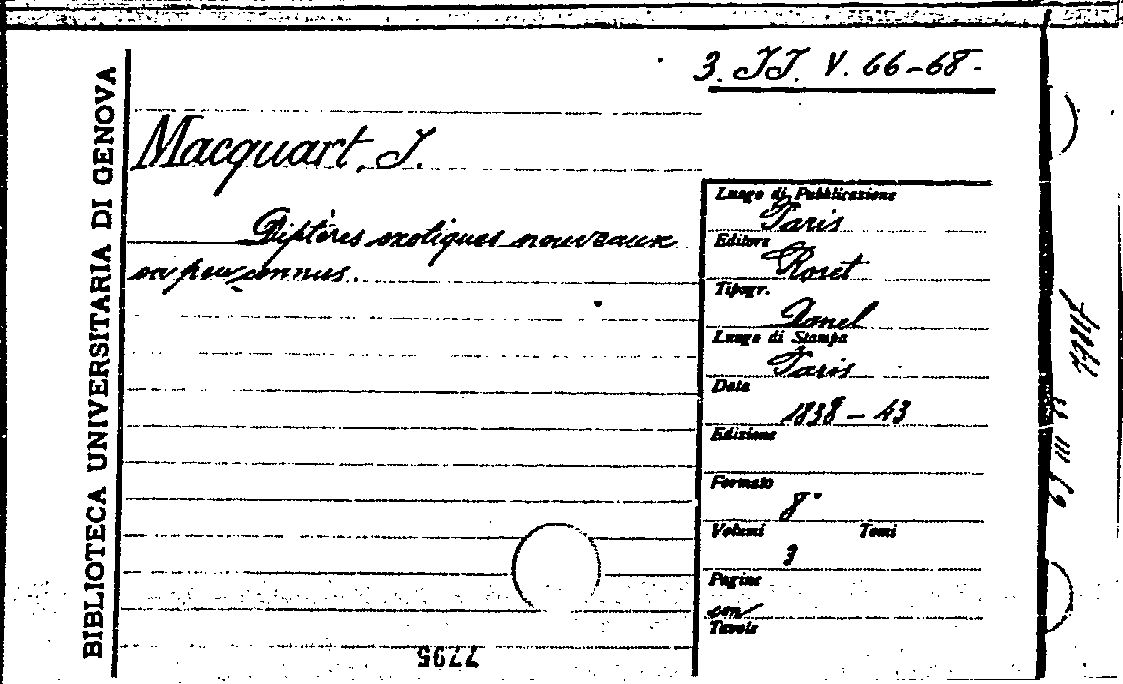 BIBLIOTECA UNIVERSITARIA DI GENOVA
3. JJ. V. 66-68.
Macquart, J.
Diptères exotiques nouveaux
ou peu connus.
Luogo di Pubblicazione
Paris
Editore
Roret
Tipogr.
Danel
Luogo di Stampa
Paris
Data
1838-43
Edizione
Formato
8°
Volumi Tomi
3
Pagine
con
Tavole
7795